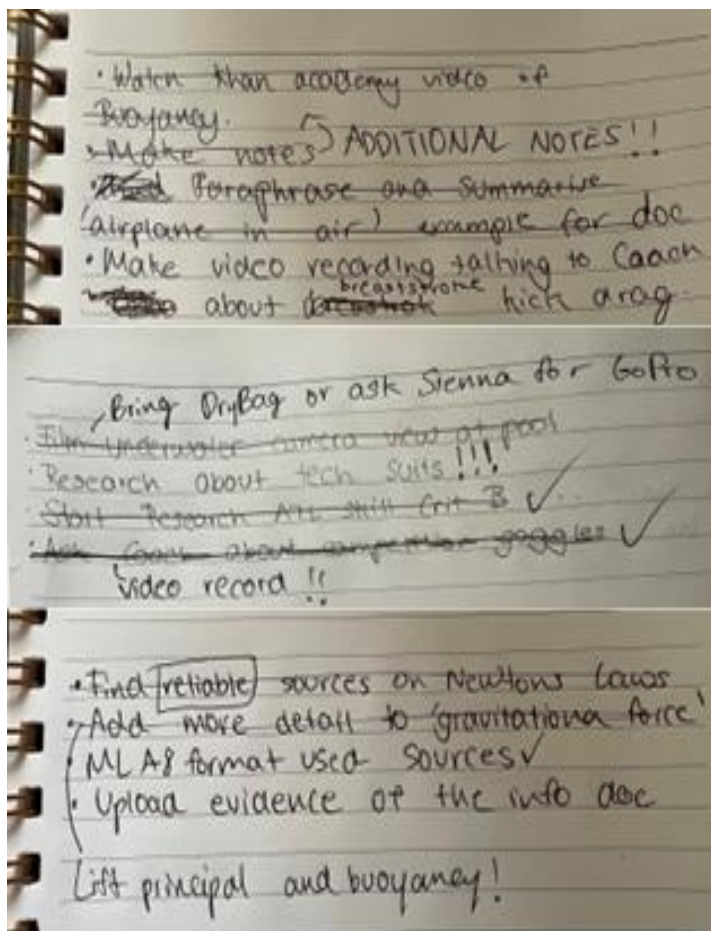 · Watch khan academy video of
Buoyancy.
· Make notes ADDITIONAL NOTES!!
· Paraphrase and summarise
'airplane in air' example for doc
· Make video recording talking to Coach
about breaststroke kick drag.
Bring DryBag or ask Sienna for GoPro
· Film underwater camera view at pool
· Research about tech suits!!!
· Start Research ATL skill Crit B ✓
· Ask Coach about competition goggles ✓
video record !!
· Find reliable sources on Newtons Laws
· Add more detail to 'gravitationa force'
· MLA8 format used sources ✓
· Upload evidence of the info doc
Lift principal and buoyancy!